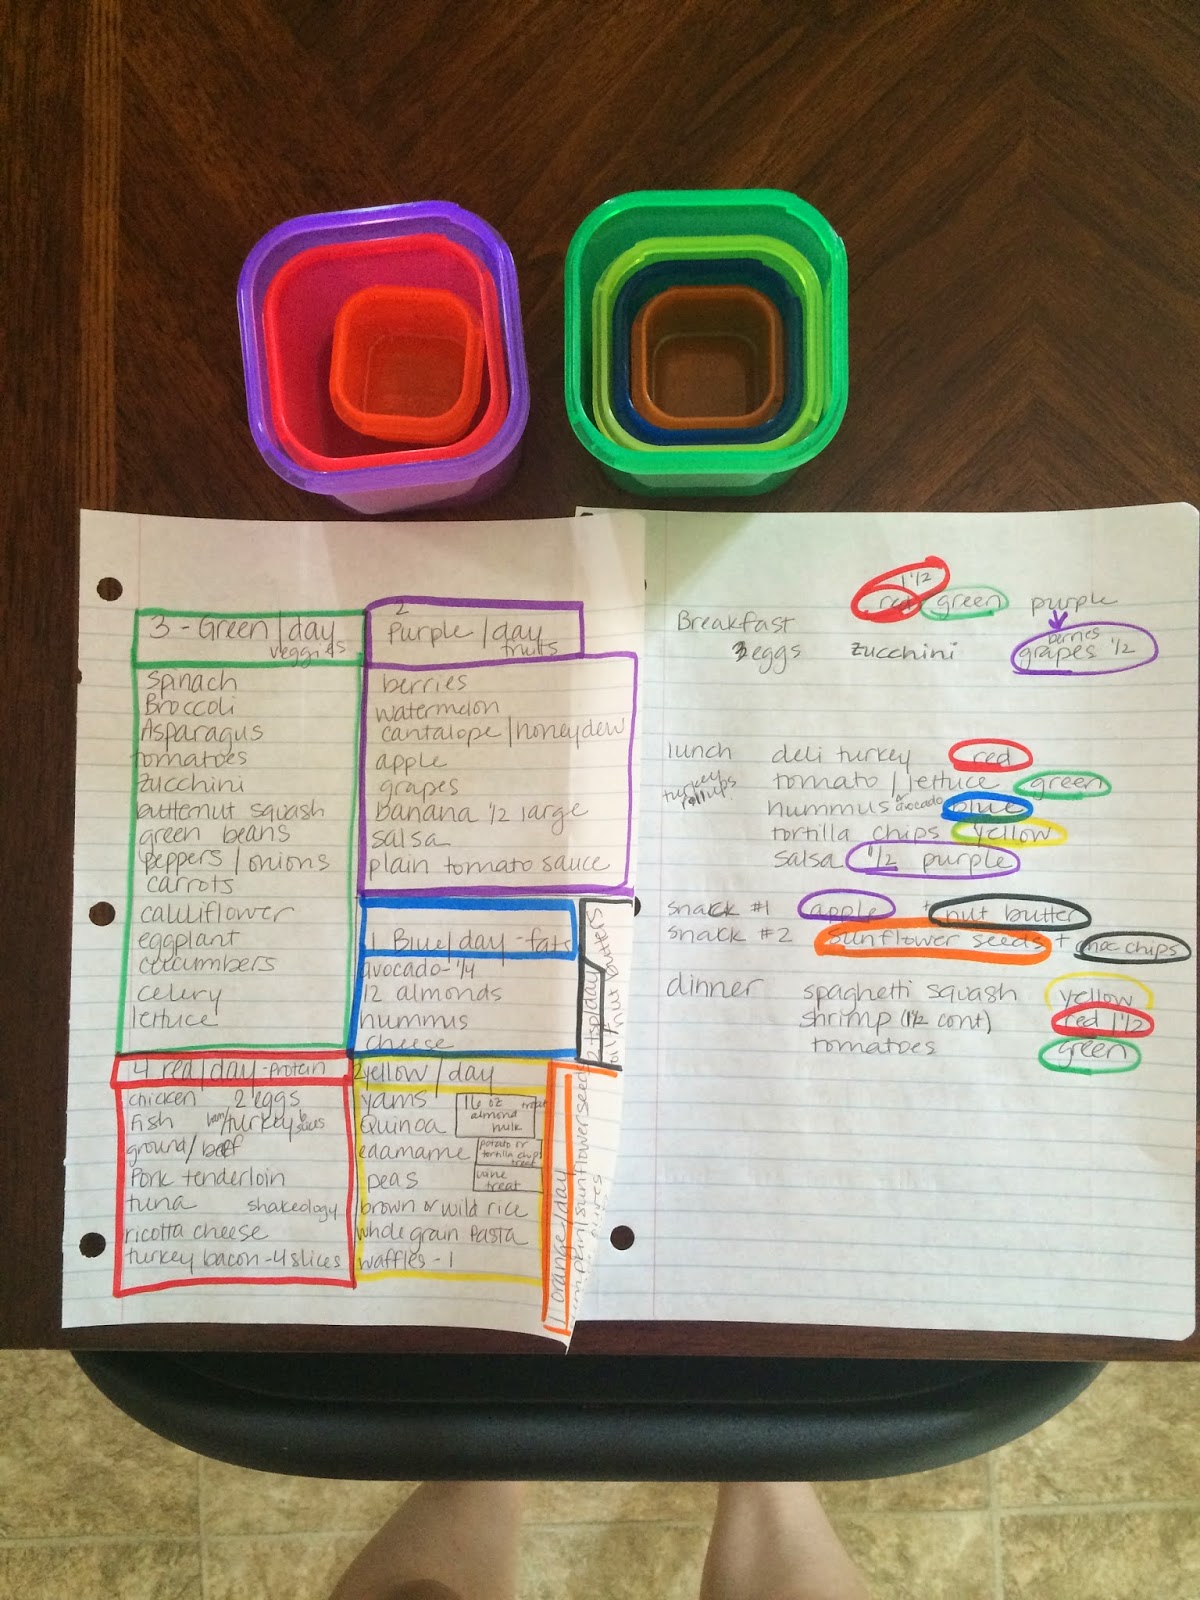 3 - Green/day
veggies
spinach
Broccoli
Asparagus
tomatoes
zucchini
butternut squash
green beans
peppers/onions
carrots
caluliflower
eggplant
cucumbers
celery
lettuce
2
Purple/day
fruits
berries
watermelon
cantalope/honeydew
apple
grapes
Banana 1/2 large
salsa
plain tomato sauce
1 Blue/day - fats
avocado - 1/4
12 almonds
hummus
cheese
2 tsp/day
oil/nut butters
4 red/day - protein
chicken 2 eggs
fish turkey
ground/beef
Pork tenderloin
tuna shakeology
ricotta cheese
turkey bacon - 4 slices
2 yellow/day
yams
Quinoa
edamame
peas
brown or wild rice
whole grain Pasta
waffles - 1
16 oz treat
almond
milk
potato or
tortilla chips
treat
wine
treat
1 orange/day
sunflower seeds
1 1/2
red green purple
Breakfast
3 eggs zucchini berries
grapes 1/2
lunch deli turkey red
turkey rollups
tomato/lettuce green
hummus or avocado blue
tortilla chips yellow
salsa 1/2 purple
snack #1 apple + nut butter
snack #2 sunflower seeds + choc chips
dinner spaghetti squash yellow
shrimp (1 1/2 cont) red 1 1/2
tomatoes green